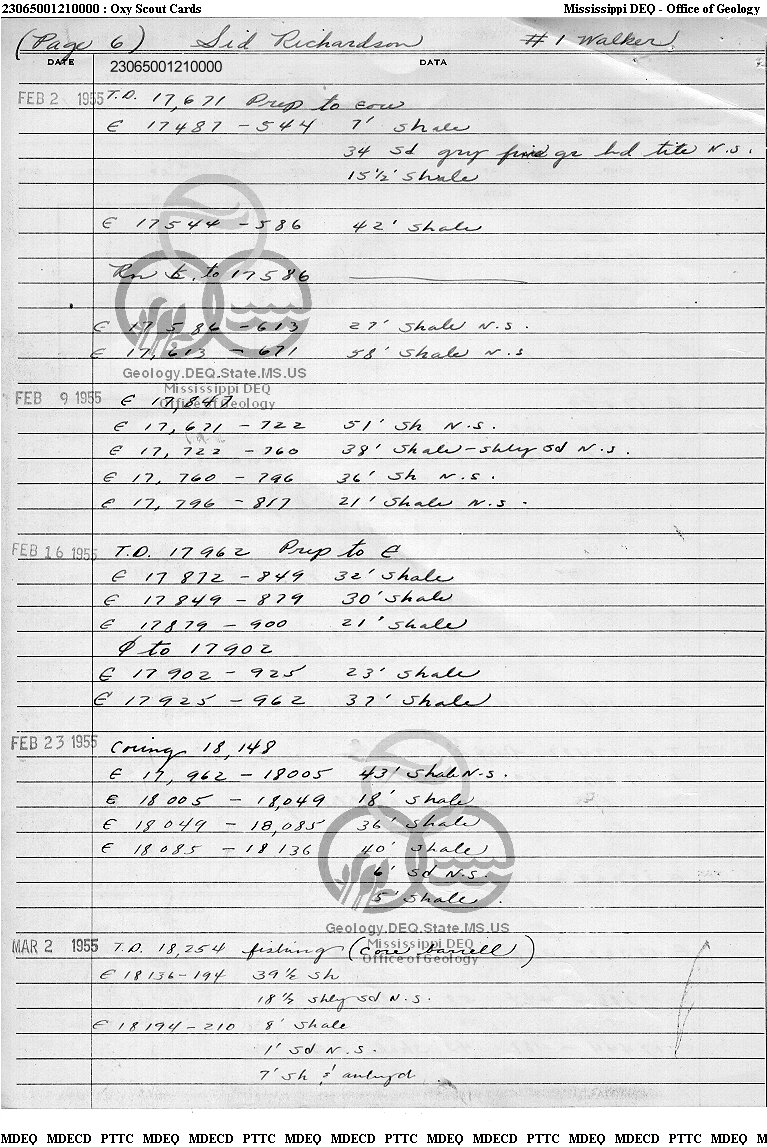 23065001210000 : Oxy Scout Cards Mississippi DEQ - Office of Geology
(Page 6) Sid Richardson #1 Walker
DATE 23065001210000 DATA
FEB 2 1955 T.D. 17,671 Prep to core
C 17487 - 544 7' shale
34 sd gry fine gr hd tite N.S.
15½' shale
C 17544 - 586 42' shale
Rm to 17586
C 17,586 - 613 27' shale N.S.
C 17,613 - 671 58' shale N.S
Geology.DEQ.State.MS.US
Mississippi DEQ
Office of Geology
FEB 9 1955 C 17,847
C 17,671 - 722 51' sh N.S.
C 17,722 - 760 38' shale - shly sd N.S.
C 17,760 - 796 36' sh N.S.
C 17,796 - 817 21' shale N.S.
FEB 16 1955 T.D. 17962 Prep to C
C 17872 - 849 32' shale
C 17849 - 879 30' shale
C 17879 - 900 21' shale
Ø to 17902
C 17902 - 925 23' shale
C 17925 - 962 37' shale
FEB 23 1955 Coring 18,148
C 17,962 - 18005 43' shale N.S.
C 18005 - 18,049 18' shale
C 18049 - 18,085 36' shale
C 18085 - 18136 40' shale
6' sd N.S.
5' shale
Geology.DEQ.State.MS.US
Mississippi DEQ
Office of Geology
MAR 2 1955 T.D. 18,254 fishing (core barrell)
C 18136-194 39½ sh
18½ shly sd N.S.
C 18194-210 8' shale
1' sd N.S.
7' sh & anhyd
MDEQ MDECD PTTC MDEQ MDECD PTTC MDEQ MDECD PTTC MDEQ MDECD PTTC MDEQ MDECD PTTC MDEQ M